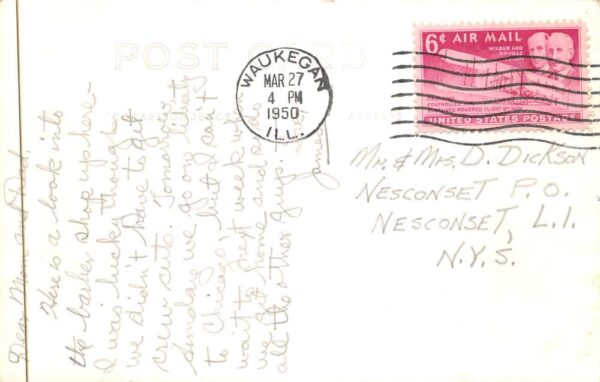 POST CARD
WAUKEGAN
MAR 27
4 PM
1950
ILL.
6¢ AIR MAIL
WILBUR AND
ORVILLE
UNITED STATES POSTAGE
Mr. & Mrs. D. Dickson
NESCONSET P.O.
NESCONSET, L.I.
N.Y.S.
Dear Mom and Dad,
Here is a look into
the barber shop up here -
I was lucky though
we didn't have to get
crew cuts. Tomorrow,
Sunday we go on liberty
to Chicago, but I can't
wait to next week when
we get home and so do
all the other guys.
James